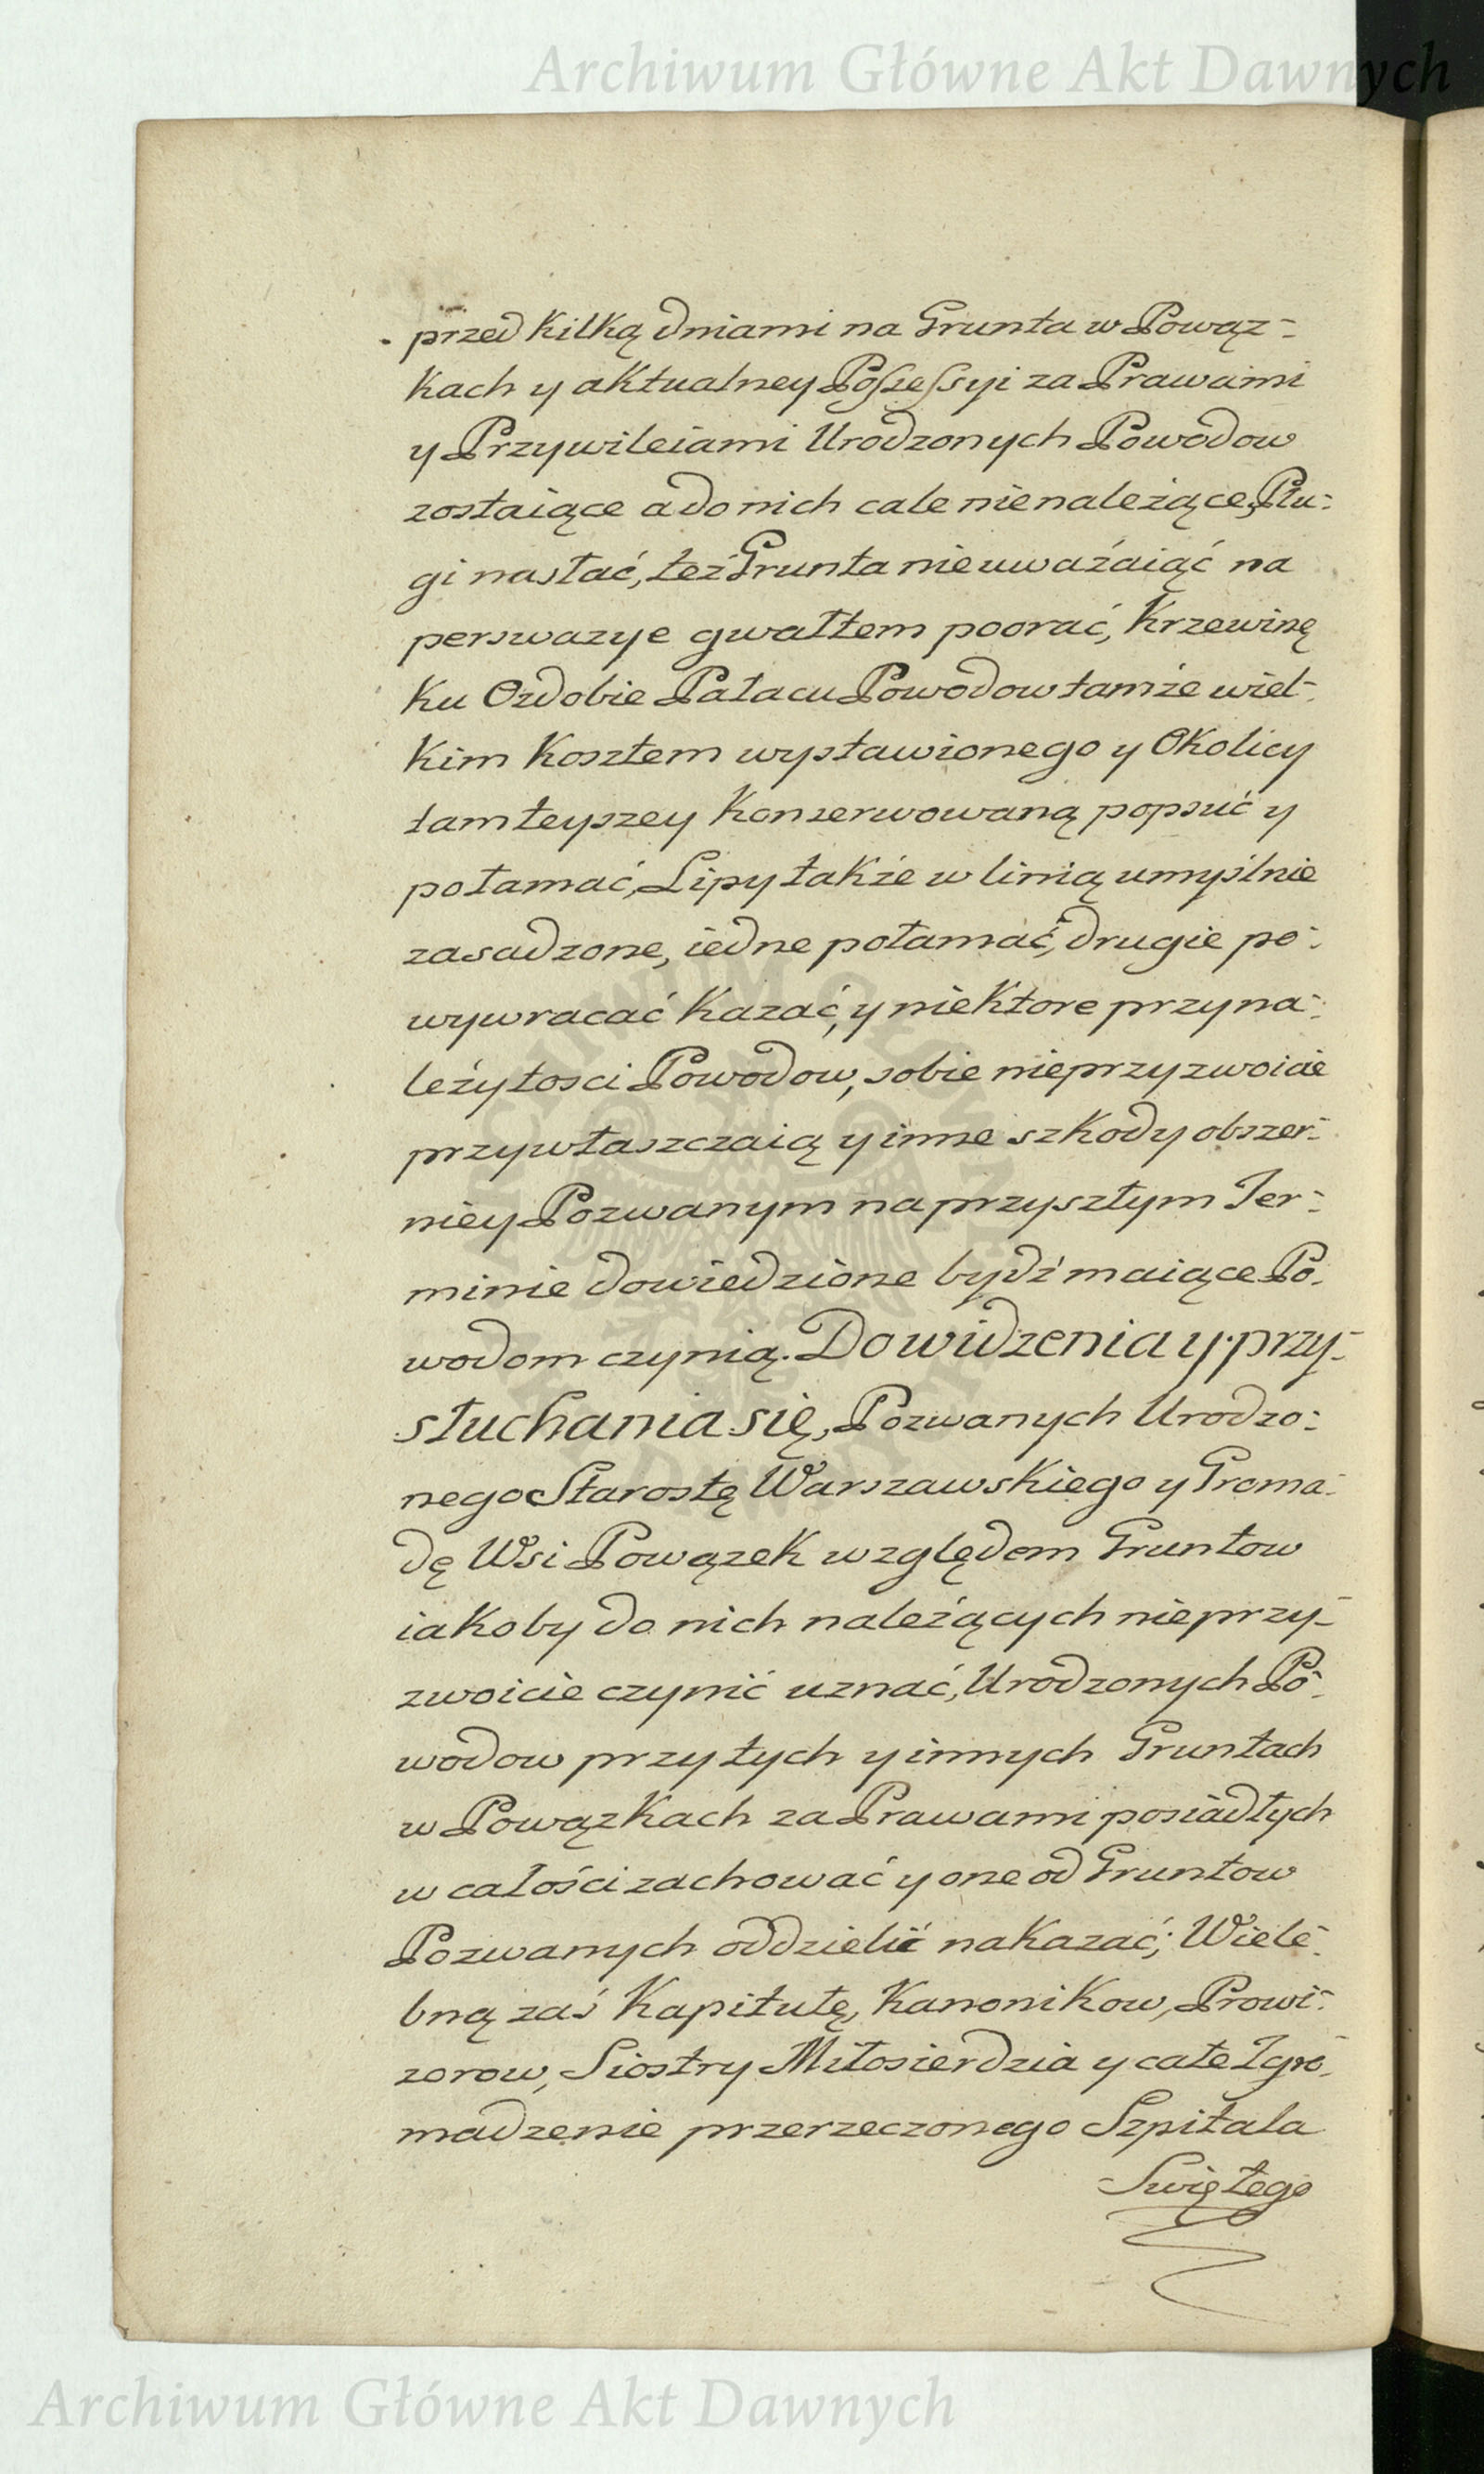 Archiwum Główne Akt Dawnych
przed kilką dniami na Grunta w Powąz-
kach y aktualney Possessyi za Prawami
y Przywileiami Urodzonych Powodow
zostaiące a do nich cale nienależące, Płu-
gi nasłać, też Grunta nieuważaiąć na
perswazye gwałtem poorać, Krzewinę
ku Ozdobie Pałacu Powodow tamże wiel-
kim kosztem wystawionego y Okolicy
tamteyszey konserwowaną popsuć y
połamać, Lipy także w linią umyślnie
zasadzone, iedne połamać, drugie po-
wywracać kazać, y niektore przyna-
leżytosci Powodow, sobie nieprzyzwoicie
przywłaszczaią y inne szkody obszer-
niey Pozwanym na przyszłym Ter-
minie dowiedzione bydź maiące Po-
wodom czynią. Do widzenia y przy-
słuchania się, Pozwanych Urodzo-
nego Starostę Warszawskiego y Groma-
dę Wsi Powązek względem Gruntow
iakoby do nich należących nieprzy-
zwoicie czynić uznać, Urodzonych Po-
wodow przy tych y innych Gruntach
w Powązkach za Prawami posiadłych
w całości zachować y one od Gruntow
Pozwanych oddzielić nakazać; Wiele-
bną zaś Kapitułę, Kanonikow, Prowi-
zorow, Siostry Miłosierdzia y całe Zgro-
madzenie przerzeczonego Szpitala
Swiętego
Archiwum Główne Akt Dawnych